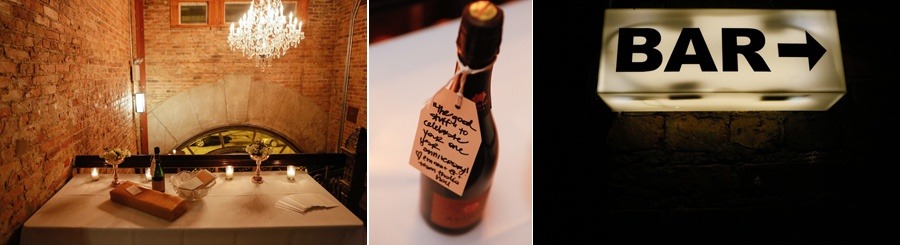 "the good
stuff" to
celebrate
your one
year
anniversary!
BAR→